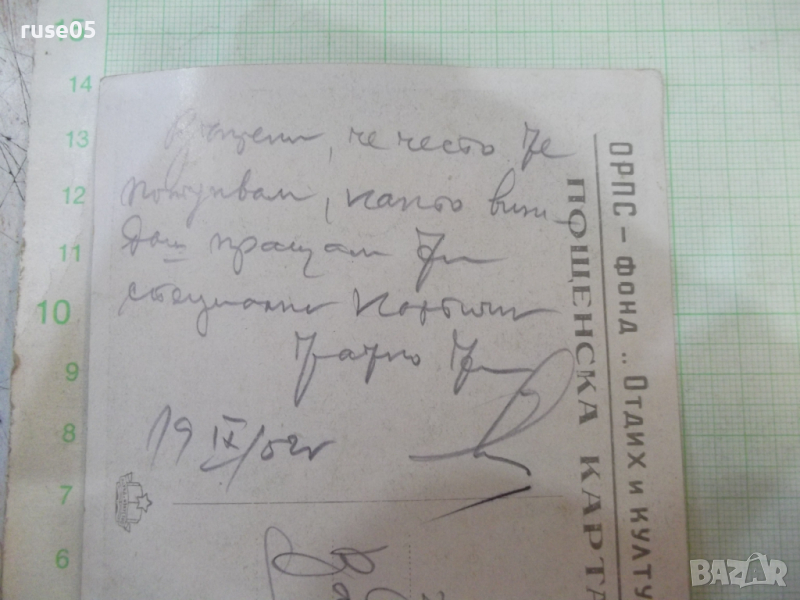 ruse05
15
14
13
12
11
10
9
8
7
6
, че често Те
, както виж
даш пращам Ти
специални картички
Татко Ти
19 IX/52г
ОРПС – ФОНД „ ОТДИХ И КУЛТУ
ПОЩЕНСКА КАРТА
BAZAR